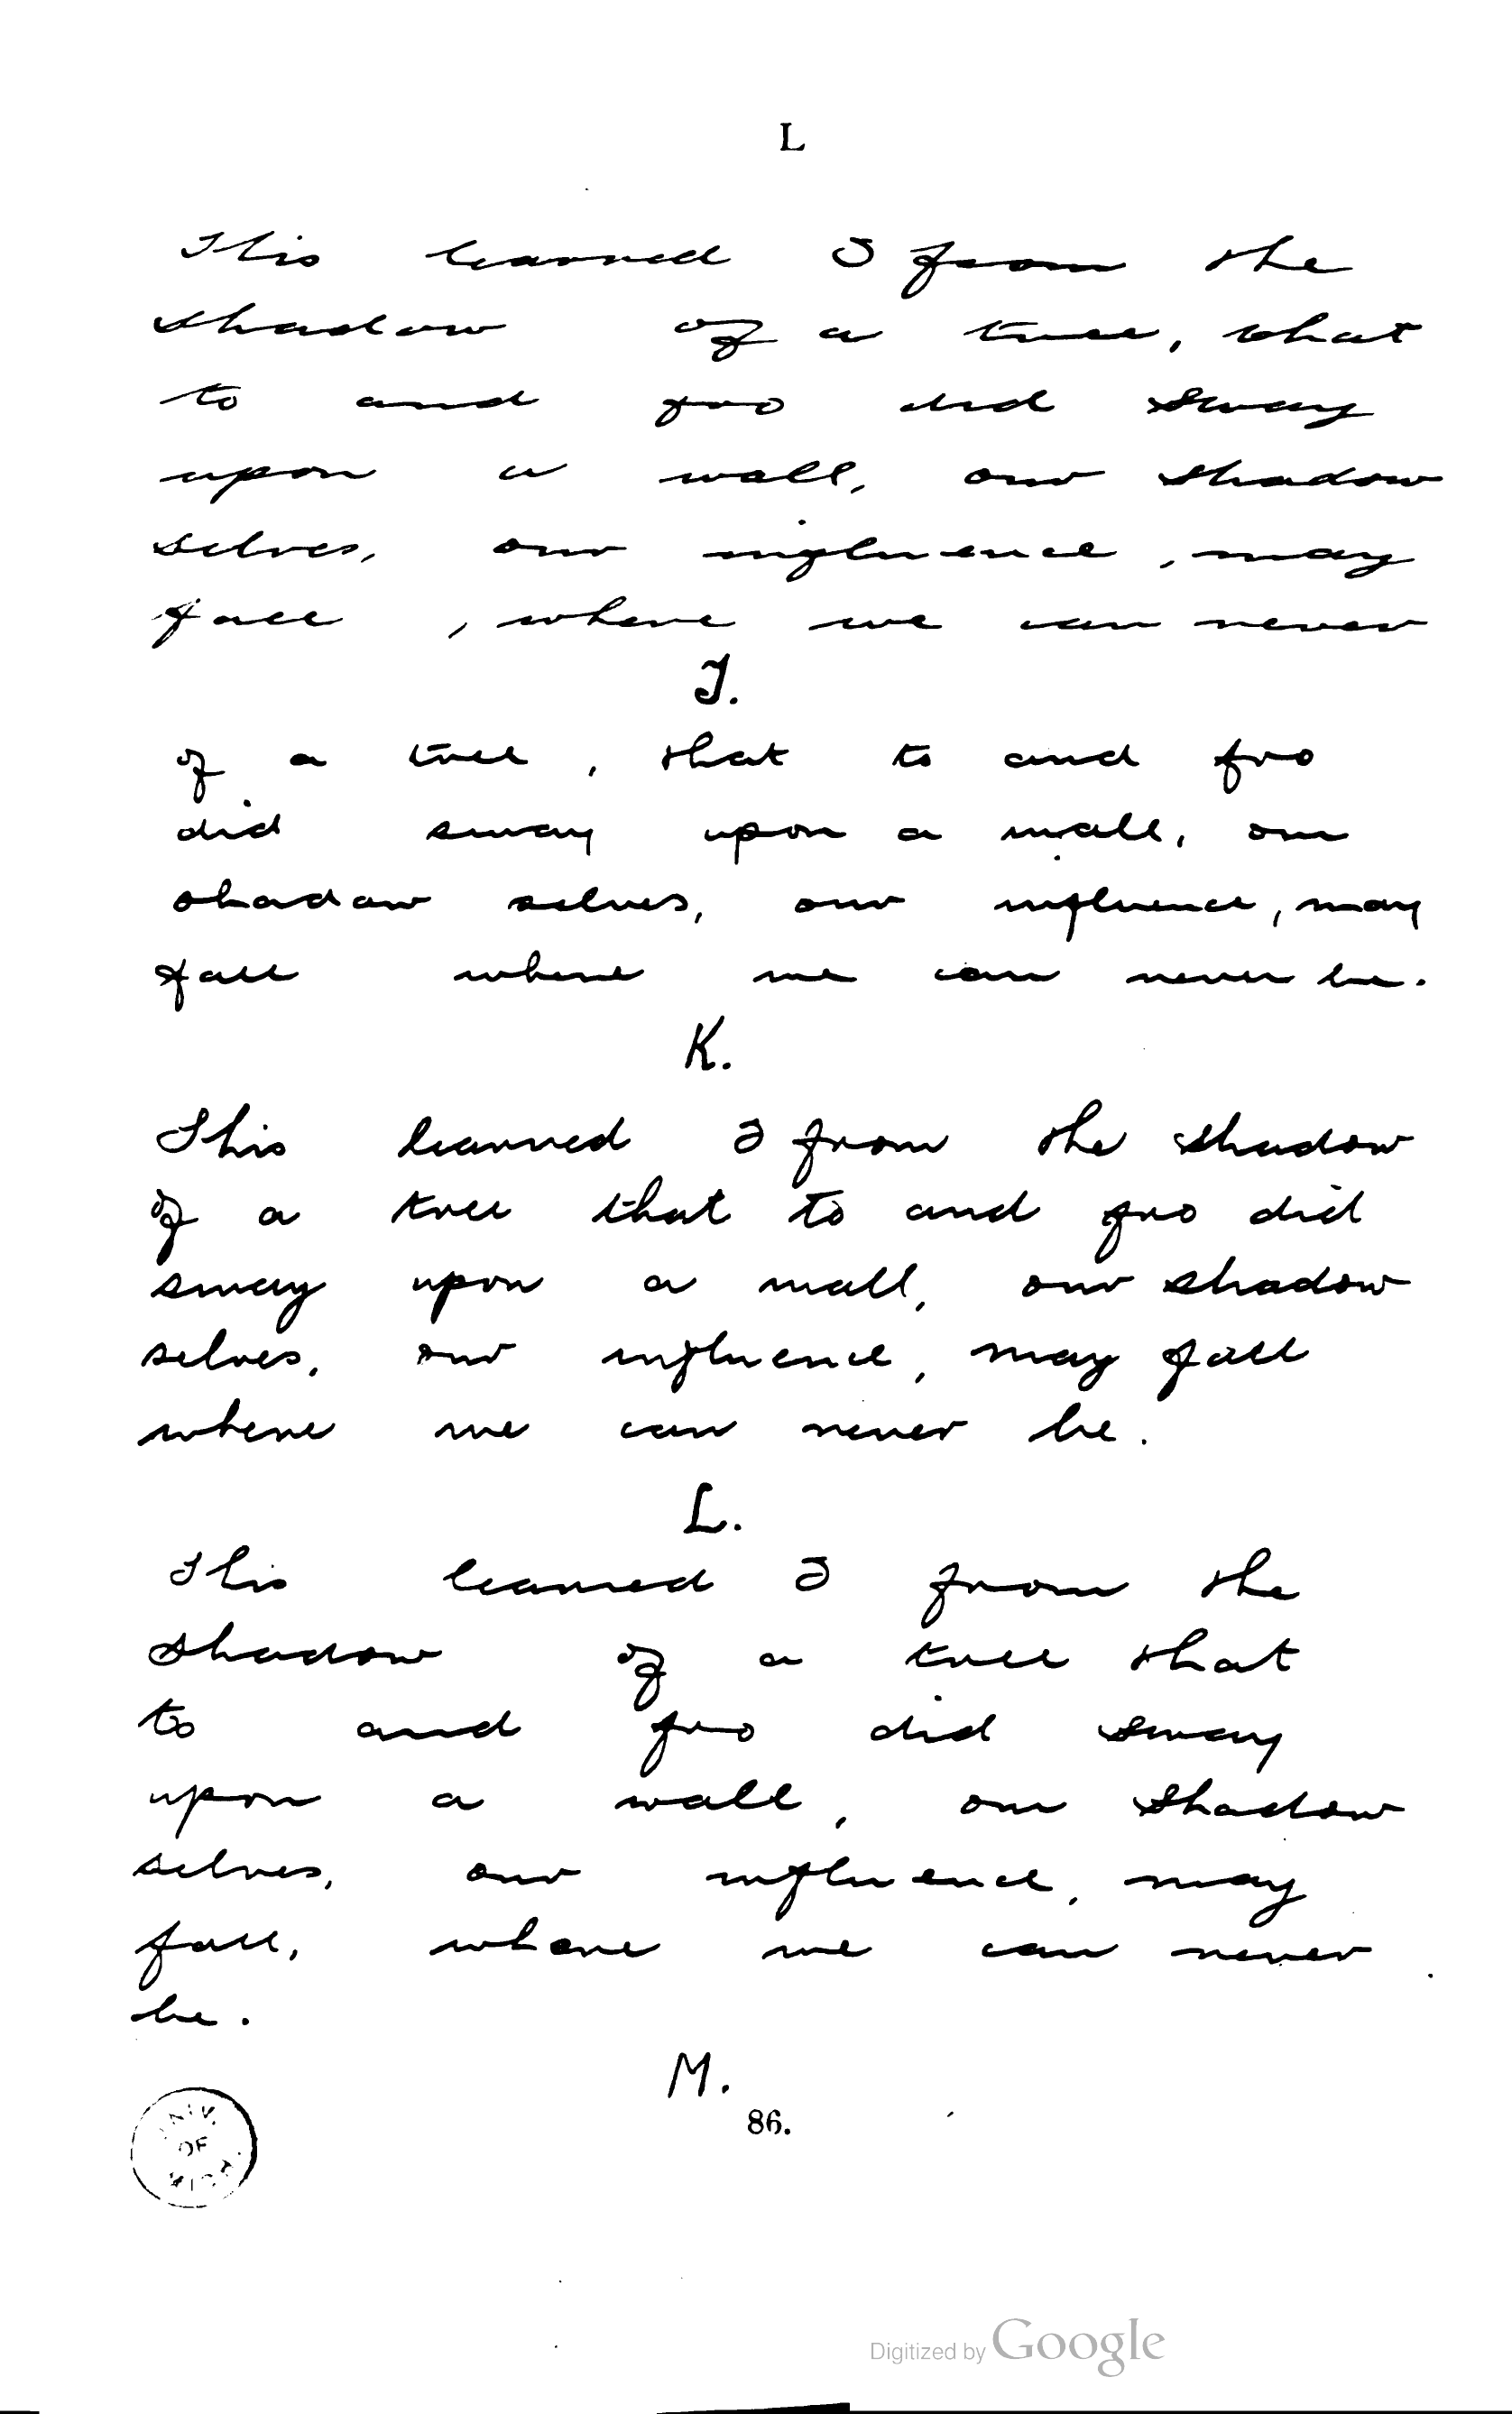 L
This learned I from the
shadow of a tree, that
to and fro did sway
upon a wall, our shadow
selves, our influence, may
fall, where we can never
J.
of a tree, that to and fro
did sway upon a wall, our
shadow selves, our influence, may
fall where we can never be.
K.
This learned I from the shadow
of a tree that to and fro did
sway upon a wall, our shadow
selves, our influence, may fall
where we can never be.
L.
This learned I from the
shadow of a tree that
to and fro did sway
upon a wall, our shadow
selves, our influence, may
fall, where we can never
be.
M.
86.
UNIV.
OF
MICH.
Digitized by Google